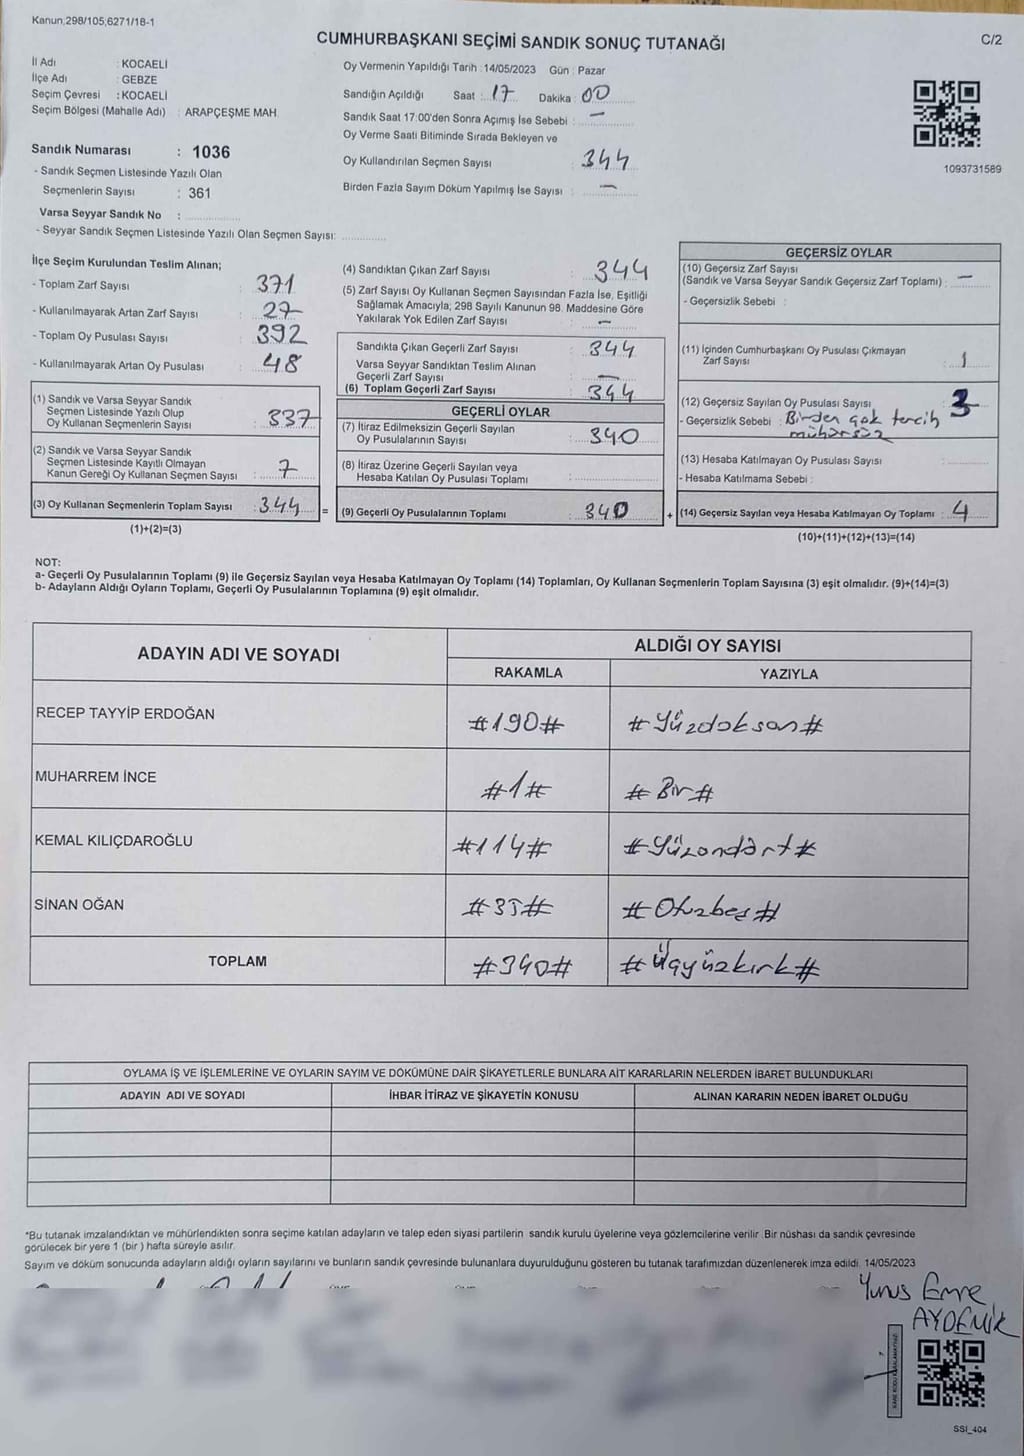 Kanun,298/105,6271/18-1
CUMHURBAŞKANI SEÇİMİ SANDIK SONUÇ TUTANAĞI
C/2
İl Adı : KOCAELİ
İlçe Adı : GEBZE
Seçim Çevresi : KOCAELİ
Seçim Bölgesi (Mahalle Adı) : ARAPÇEŞME MAH.
Sandık Numarası : 1036
- Sandık Seçmen Listesinde Yazılı Olan
Seçmenlerin Sayısı : 361
Varsa Seyyar Sandık No :
- Seyyar Sandık Seçmen Listesinde Yazılı Olan Seçmen Sayısı:
Oy Vermenin Yapıldığı Tarih : 14/05/2023 Gün : Pazar
Sandığın Açıldığı Saat : 17 Dakika : 00
Sandık Saat 17:00'den Sonra Açımış İse Sebebi : —
Oy Verme Saati Bitiminde Sırada Bekleyen ve
Oy Kullandırılan Seçmen Sayısı : 344
Birden Fazla Sayım Döküm Yapılmış İse Sayısı : —
1093731589
İlçe Seçim Kurulundan Teslim Alınan;
- Toplam Zarf Sayısı : 371
- Kullanılmayarak Artan Zarf Sayısı : 27
- Toplam Oy Pusulası Sayısı : 392
- Kullanılmayarak Artan Oy Pusulası : 48
(1) Sandık ve Varsa Seyyar Sandık
Seçmen Listesinde Yazılı Olup
Oy Kullanan Seçmenlerin Sayısı : 337
(2) Sandık ve Varsa Seyyar Sandık
Seçmen Listesinde Kayıtlı Olmayan
Kanun Gereği Oy Kullanan Seçmen Sayısı : 7
(3) Oy Kullanan Seçmenlerin Toplam Sayısı : 344 =
(1)+(2)=(3)
(4) Sandıktan Çıkan Zarf Sayısı : 344
(5) Zarf Sayısı Oy Kullanan Seçmen Sayısından Fazla İse, Eşitliği
Sağlamak Amacıyla; 298 Sayılı Kanunun 98. Maddesine Göre
Yakılarak Yok Edilen Zarf Sayısı : —
Sandıkta Çıkan Geçerli Zarf Sayısı : 344
Varsa Seyyar Sandıktan Teslim Alınan
Geçerli Zarf Sayısı : —
(6) Toplam Geçerli Zarf Sayısı : 344
GEÇERLİ OYLAR
(7) İtiraz Edilmeksizin Geçerli Sayılan
Oy Pusulalarının Sayısı : 340
(8) İtiraz Üzerine Geçerli Sayılan veya
Hesaba Katılan Oy Pusulası Toplamı :
(9) Geçerli Oy Pusulalarının Toplamı : 340 +
GEÇERSİZ OYLAR
(10) Geçersiz Zarf Sayısı
(Sandık ve Varsa Seyyar Sandık Geçersiz Zarf Toplamı) : —
- Geçersizlik Sebebi :
(11) İçinden Cumhurbaşkanı Oy Pusulası Çıkmayan
Zarf Sayısı : 1
(12) Geçersiz Sayılan Oy Pusulası Sayısı : 3
- Geçersizlik Sebebi : Birden çok tercih
mühürsüz
(13) Hesaba Katılmayan Oy Pusulası Sayısı :
- Hesaba Katılmama Sebebi :
(14) Geçersiz Sayılan veya Hesaba Katılmayan Oy Toplamı : 4
(10)+(11)+(12)+(13)=(14)
NOT:
a- Geçerli Oy Pusulalarının Toplamı (9) ile Geçersiz Sayılan veya Hesaba Katılmayan Oy Toplamı (14) Toplamları, Oy Kullanan Seçmenlerin Toplam Sayısına (3) eşit olmalıdır. (9)+(14)=(3)
b- Adayların Aldığı Oyların Toplamı, Geçerli Oy Pusulalarının Toplamına (9) eşit olmalıdır.
ADAYIN ADI VE SOYADI
ALDIĞI OY SAYISI
RAKAMLA YAZIYLA
RECEP TAYYİP ERDOĞAN #190# #Yüzdoksan#
MUHARREM İNCE #1# #Bir#
KEMAL KILIÇDAROĞLU #114# #Yüzondört#
SİNAN OĞAN #35# #Otuzbeş#
TOPLAM #340# #Üçyüzkırk#
OYLAMA İŞ VE İŞLEMLERİNE VE OYLARIN SAYIM VE DÖKÜMÜNE DAİR ŞİKAYETLERLE BUNLARA AİT KARARLARIN NELERDEN İBARET BULUNDUKLARI
ADAYIN ADI VE SOYADI İHBAR İTİRAZ VE ŞİKAYETİN KONUSU ALINAN KARARIN NEDEN İBARET OLDUĞU
*Bu tutanak imzalandıktan ve mühürlendikten sonra seçime katılan adayların ve talep eden siyasi partilerin sandık kurulu üyelerine veya gözlemcilerine verilir. Bir nüshası da sandık çevresinde
görülecek bir yere 1 (bir ) hafta süreyle asılır.
Sayım ve döküm sonucunda adayların aldığı oyların sayılarını ve bunların sandık çevresinde bulunanlara duyurulduğunu gösteren bu tutanak tarafımızdan düzenlenerek imza edildi. 14/05/2023
Yunus Emre
AYDEMİR
SSİ_404